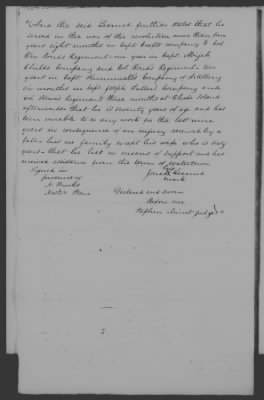 "And the said Learned further states that he
served in the war of the revolution more than two
years eight months in Capt Crafts Company & Col
Bonds Regiment one year in Capt Abijah
Childs Company and Col Regiment two
years in Capt Company of Artillery
six months in Capt Joseph Fullers Company and
Col Regiment three months at Rhode Island
afterwards that he is seventy years of age and has
been unable to do any work for the last nine
years in consequence of an injury received by a
fall has no family except his wife who is sixty
years that he has no means of support and has
received assistance from the town of Watertown
Signed in
presence of
his
Learned
mark
N. Brooks
Declared and sworn
Before me
Stephen Minot judge &c